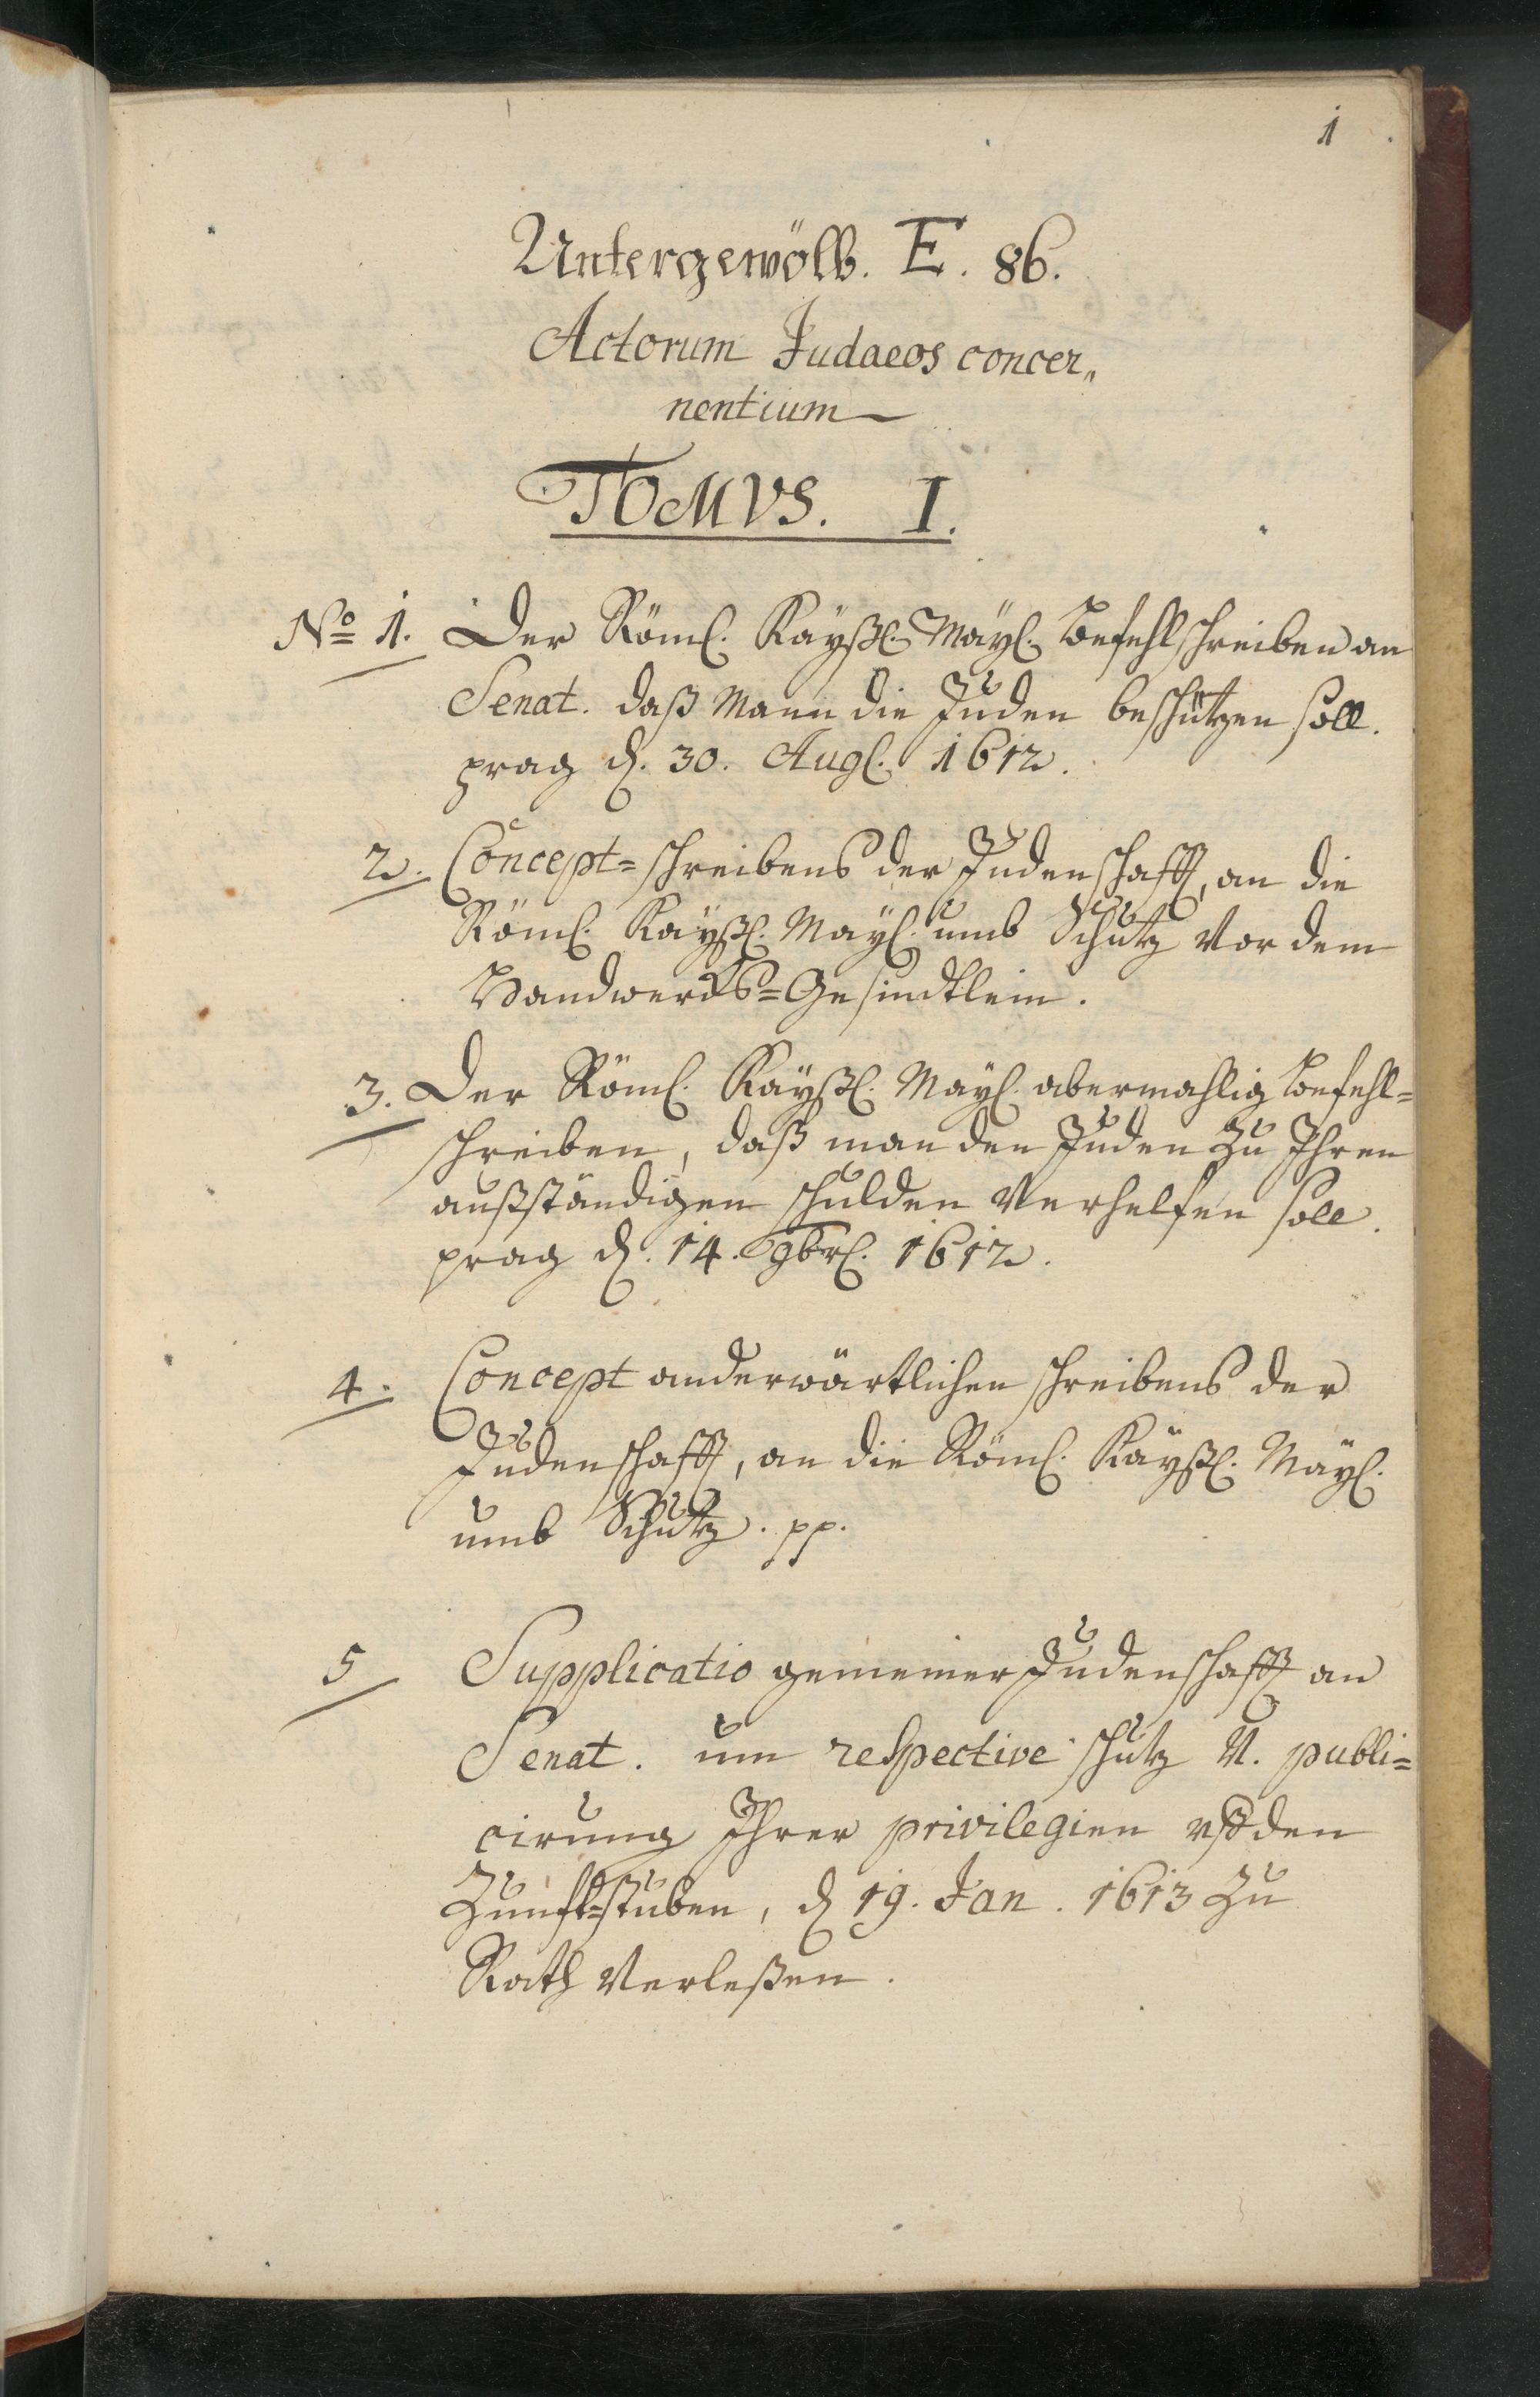 1
Untergewölb. E. 86.
Actorum Judaeos concer„
nentium
TOMVS. I.
No 1. Der Röml. Kayßl. Mayl. Befehlschreiben an
Senat. daß Mann die Juden beschützen soll.
prag d. 30. Augl. 1612.
2. Concept=schreibens der Judenschafft, an die
Röml. Kayßl. Mayl. umb Schutz vor dem
Handwercks=Gesindtlein.
3. Der Röml. Kayßl. Mayl. abermahlig Befehl=
schreiben, daß man den Juden zu Ihren
außständigen schulden verhelfen solle.
prag d. 14. 9brl. 1612.
4. Concept anderwärtlichen schreibens der
Judenschafft, an die Röml. Kayßl. Mayl.
umb Schutz. pp.
5 Supplicatio gemeiner Judenschafft an
Senat. um respective schutz u. publi=
cirung Ihrer privilegien den
Zunfft=stuben, d 19. Jan. 1613 zu
Rath verleßen.